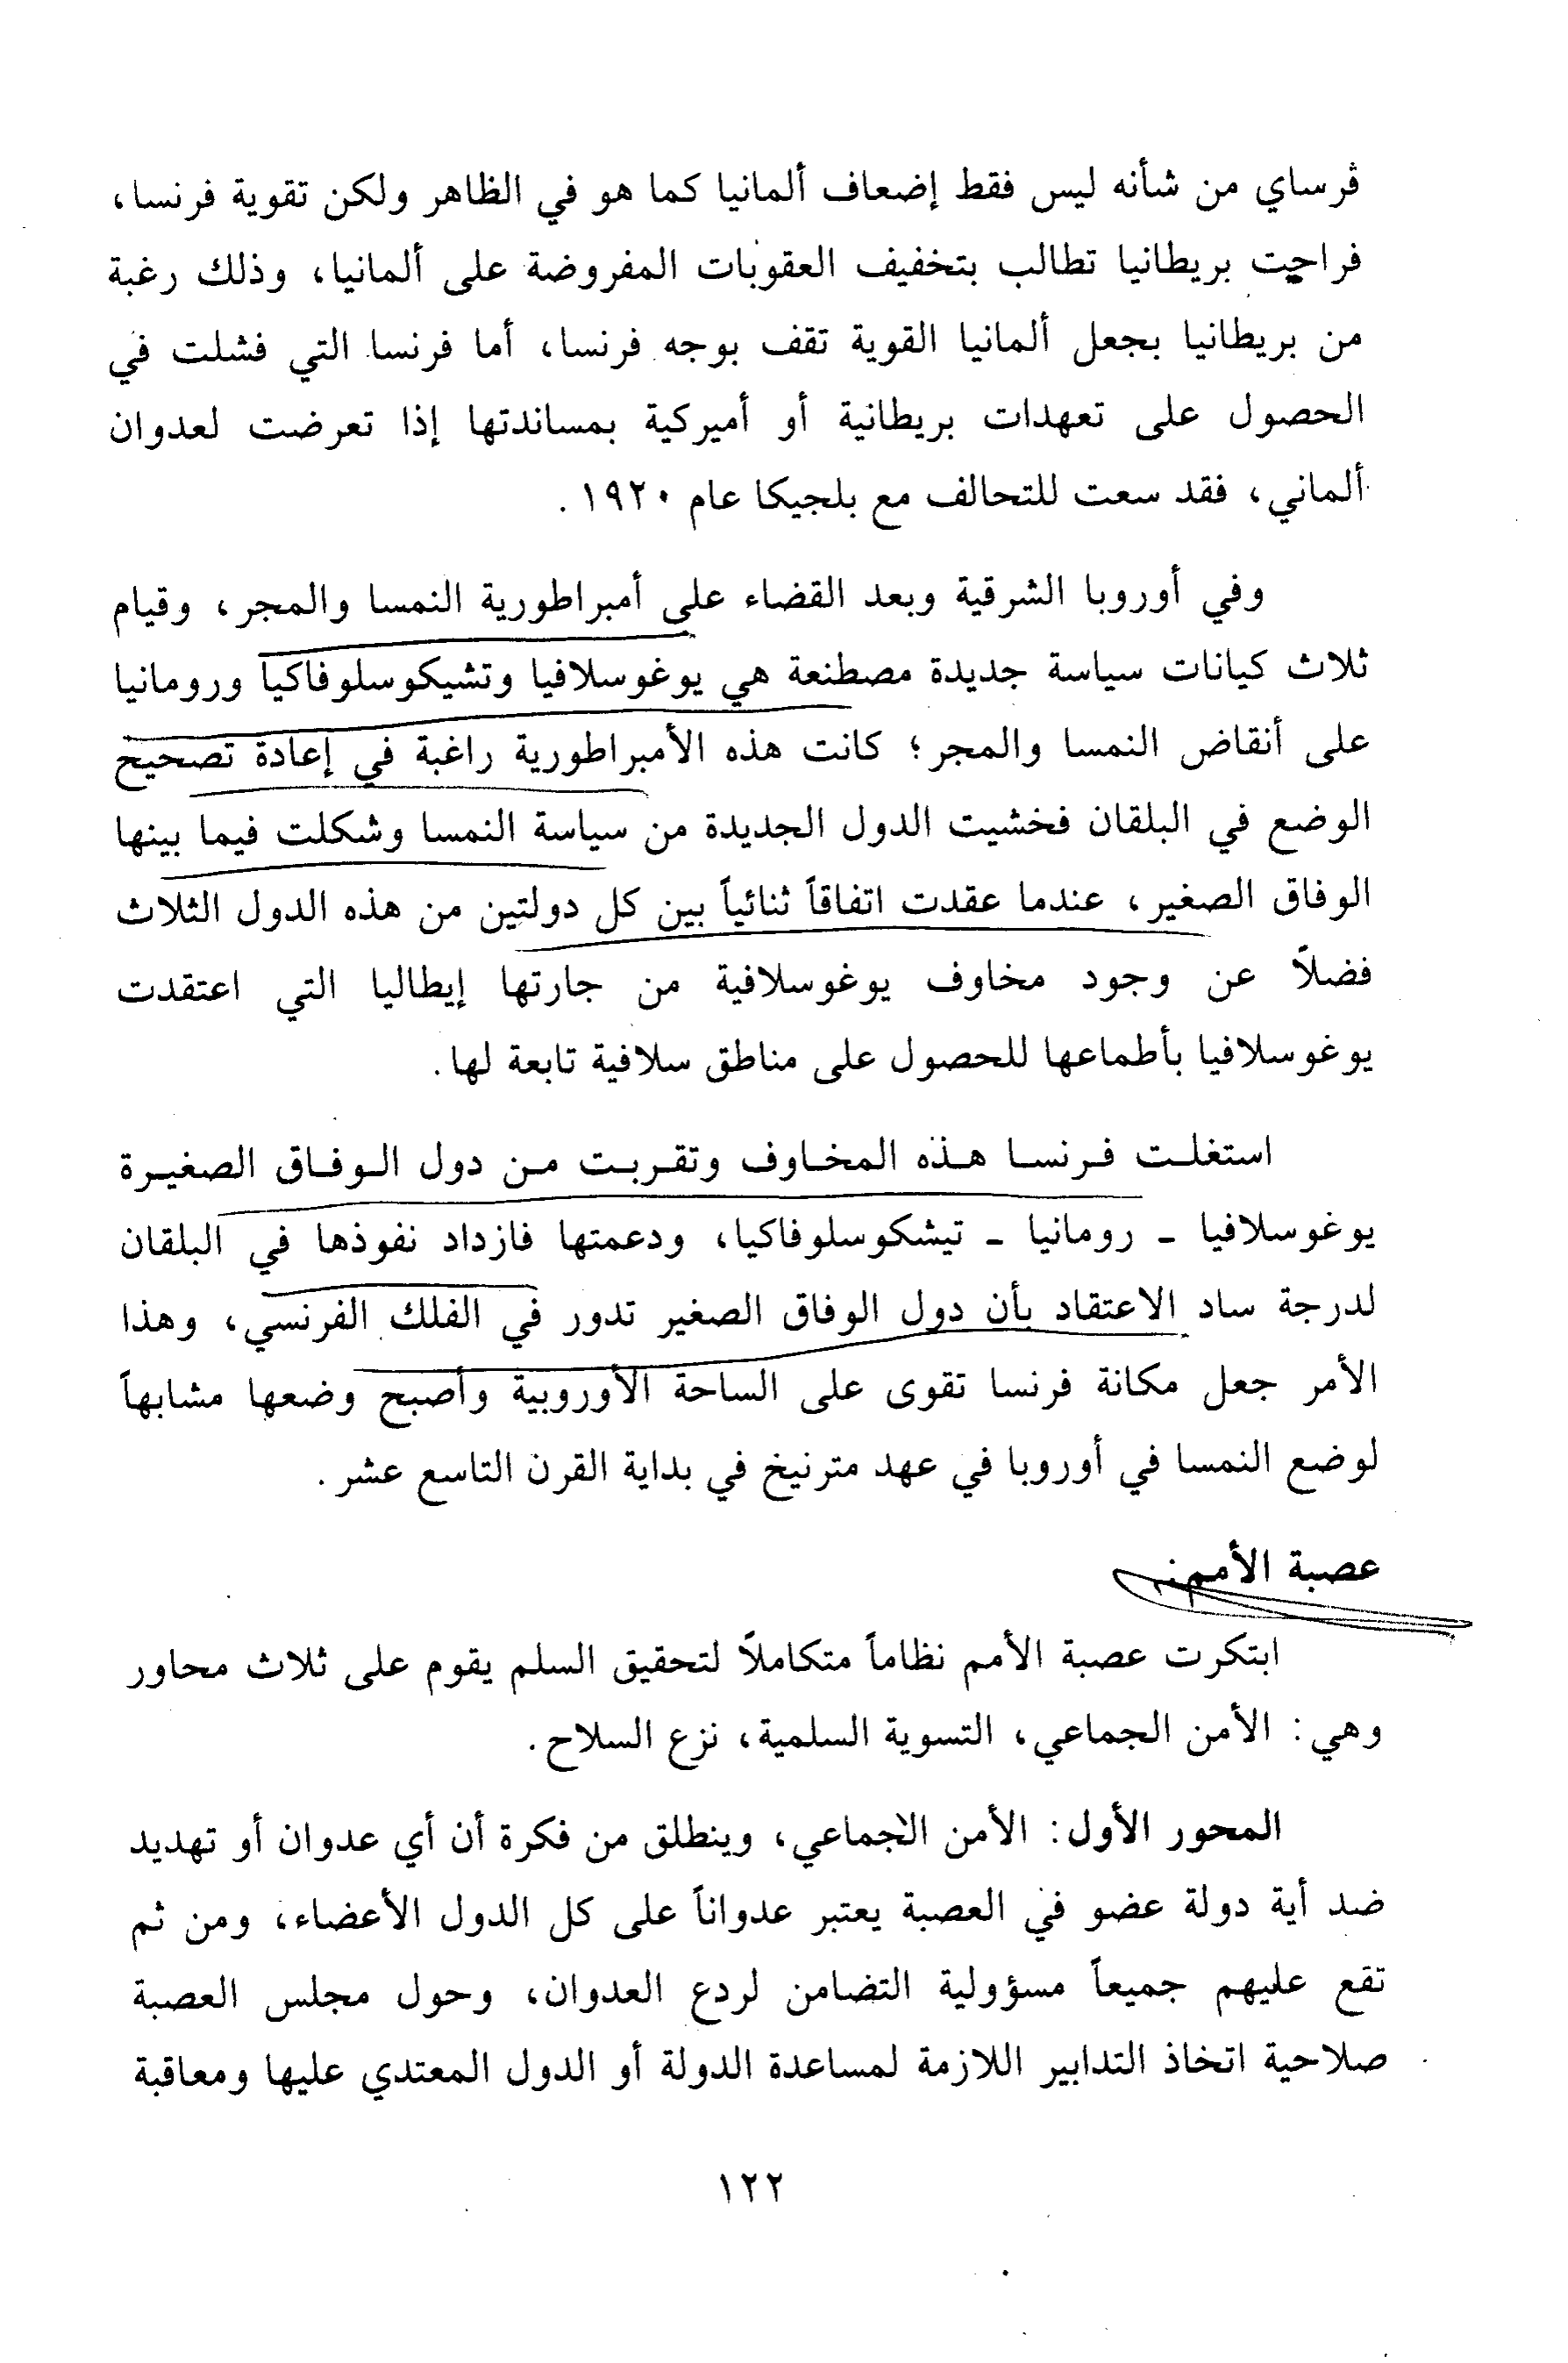 ڤرساي من شأنه ليس فقط إضعاف ألمانيا كما هو في الظاهر ولكن تقوية فرنسا،
فراحت بريطانيا تطالب بتخفيف العقوبات المفروضة على ألمانيا، وذلك رغبة
من بريطانيا بجعل ألمانيا القوية تقف بوجه فرنسا، أما فرنسا التي فشلت في
الحصول على تعهدات بريطانية أو أميركية بمساندتها إذا تعرضت لعدوان
ألماني، فقد سعت للتحالف مع بلجيكا عام ١٩٢٠.
وفي أوروبا الشرقية وبعد القضاء على أمبراطورية النمسا والمجر، وقيام
ثلاث كيانات سياسة جديدة مصطنعة هي يوغوسلافيا وتشيكوسلوفاكيا ورومانيا
على أنقاض النمسا والمجر؛ كانت هذه الأمبراطورية راغبة في إعادة تصحيح
الوضع في البلقان فخشيت الدول الجديدة من سياسة النمسا وشكلت فيما بينها
الوفاق الصغير، عندما عقدت اتفاقاً ثنائياً بين كل دولتين من هذه الدول الثلاث
فضلاً عن وجود مخاوف يوغوسلافية من جارتها إيطاليا التي اعتقدت
يوغوسلافيا بأطماعها للحصول على مناطق سلافية تابعة لها.
استغلت فرنسا هذه المخاوف وتقربت من دول الوفاق الصغيرة
يوغوسلافيا - رومانيا - تيشكوسلوفاكيا، ودعمتها فازداد نفوذها في البلقان
لدرجة ساد الاعتقاد بأن دول الوفاق الصغير تدور في الفلك الفرنسي، وهذا
الأمر جعل مكانة فرنسا تقوى على الساحة الأوروبية وأصبح وضعها مشابهاً
لوضع النمسا في أوروبا في عهد مترنيخ في بداية القرن التاسع عشر.
عصبة الأمم:
ابتكرت عصبة الأمم نظاماً متكاملاً لتحقيق السلم يقوم على ثلاث محاور
وهي: الأمن الجماعي، التسوية السلمية، نزع السلاح.
المحور الأول: الأمن الجماعي، وينطلق من فكرة أن أي عدوان أو تهديد
ضد أية دولة عضو في العصبة يعتبر عدواناً على كل الدول الأعضاء، ومن ثم
تقع عليهم جميعاً مسؤولية التضامن لردع العدوان، وحول مجلس العصبة
صلاحية اتخاذ التدابير اللازمة لمساعدة الدولة أو الدول المعتدي عليها ومعاقبة
١٢٢